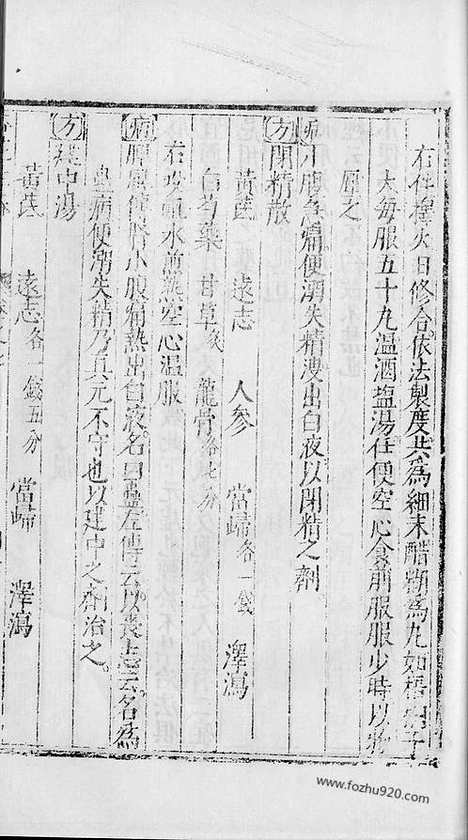 右件擇火日修合依法製度共為細末醋糊為丸如梧桐子
大每服五十丸溫酒盐湯任便空心食前服服少時以物
壓之
病小腹急痛便溺失精溲出白液以閉精之劑
方閉精散
黃芪 遠志 人參 當歸各一錢 澤瀉
白芍藥 甘草炙 龍骨各七分
右㕮咀水煎熱空心溫服
病脾風傳腎小腹痛熱出白液名曰蠱左傳云以喪志云名為
蠱病便溺失精乃真元不守也以建中之劑治之
方建中湯
黃芪 遠志各一錢五分 當歸 澤瀉
www.fozhu920.com